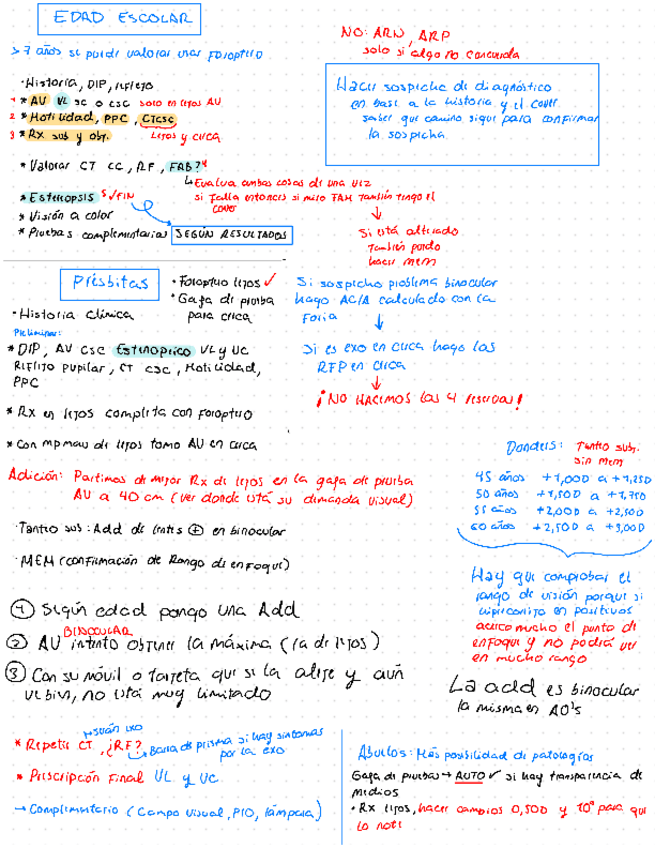 EDAD ESCOLAR
> 7 años se puede valorar usar Foróptero
· Historia, DIP, reflejo
1 * AV VL sc o csc solo en lejos AU
2 * Motilidad, PPC, CTcsc
3 * Rx sub y obj. Lejos y cerca
* Valorar CT CC, RF, FAB?
↳ Evalua ambas cosas de una vez
si falla entonces si miro FAM también tengo el
cover
* Estereopsis S/FIN
* Visión a color
* Pruebas complementarias SEGÚN RESULTADOS
NO: ARN, ARP
solo si algo no concuerda
Hacer sospecha de diagnóstico
en base a la historia y el cover
saber que camino sigue para confirmar
la sospecha
↓
Si está alterado
también puedo
hacer mem
Si sospecho problema binocular
hago AC/A calculado con la
Foria
↓
Si es exo en cerca hago las
RFP en cerca
↓
¡NO HACEMOS las 4 reservas!
Présbitas
· Foroptero lejos ✓
* Gafa de prueba
para cerca
· Historia Clínica
Preliminar:
* DIP, AV csc Estenopeico VL y VC
Reflejo pupilar, CT csc, Motilidad,
PPC
* Rx en lejos completa con foroptero
* Con mpmav de lejos tomo AV en cerca
Adición: Partimos de mejor Rx de lejos en la gafa de prueba
AU a 40 cm (ver donde está su demanda visual)
· Tanteo sub: Add de lentes ⊕ en binocular
· MEM (confirmación de Rango de enfoque)
Donders: Tanteo subj.
sin mem
45 años +1,00D a +1,25D
50 años +1,50D a +1,75D
55 años +2,00D a +2,50D
60 años +2,50D a +3,00D
Hay que comprobar el
rango de visión porque si
hipercorrijo en positivos
acerco mucho el punto de
enfoque y no podrá ver
en mucho rango
La add es binocular
la misma en AO's
① Según edad pongo una Add
BINOCULAR
② AV intento obtener la máxima (la de lejos)
③ Con su móvil o tarjeta que se la aleje y aún
ve bien, no está muy limitado
→ Suán exo
* Repetir CT, ¿RF? ↳ Barra de prisma si hay síntomas
por la exo
* Prescripción Final VL y VC
→ Complementario (Campo visual, PIO, lámpara)
Abuelos: Más posibilidad de patologías
Gafa de pruebas → AUTO ✓ si hay transparencia de
medios
· Rx lejos, hacer cambios 0,50D y 10° para que
lo note